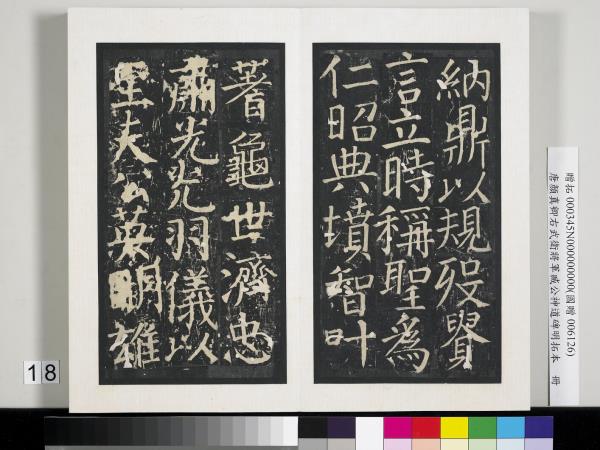 納鼎以規歿譽
言立時稱聖為
仁昭典墳智叶
蓍龜世濟忠
肅光光羽儀以
至夫公英明雄
贈拓 000345N000000000(國贈 006126)
唐顏真卿右武衛將軍臧公神道碑明拓本 冊
18